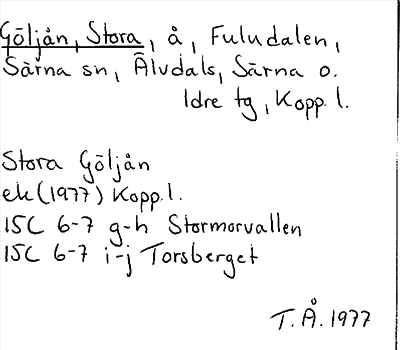 Göljån, Stora, å, Fuludalen,
Särna sn, Älvdals, Särna o.
Idre tg, Kopp. l.
Stora Göljån
ek (1977) Kopp. l.
15C 6-7 g-h Stormorvallen
15C 6-7 i-j Torsberget
T.Å. 1977